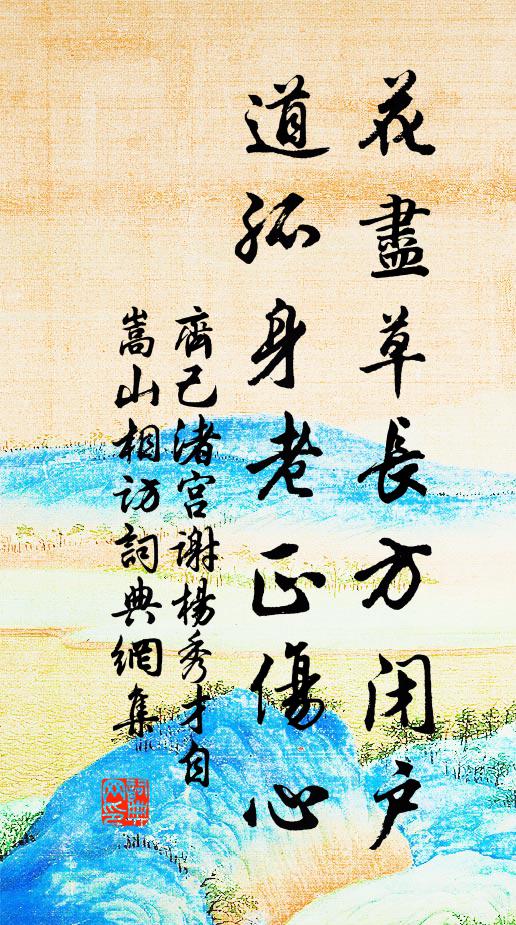 花盡草長方闭户
道孤身老正傷心
齊己渚宫谢楊秀才自
嵩山相访詞典網集